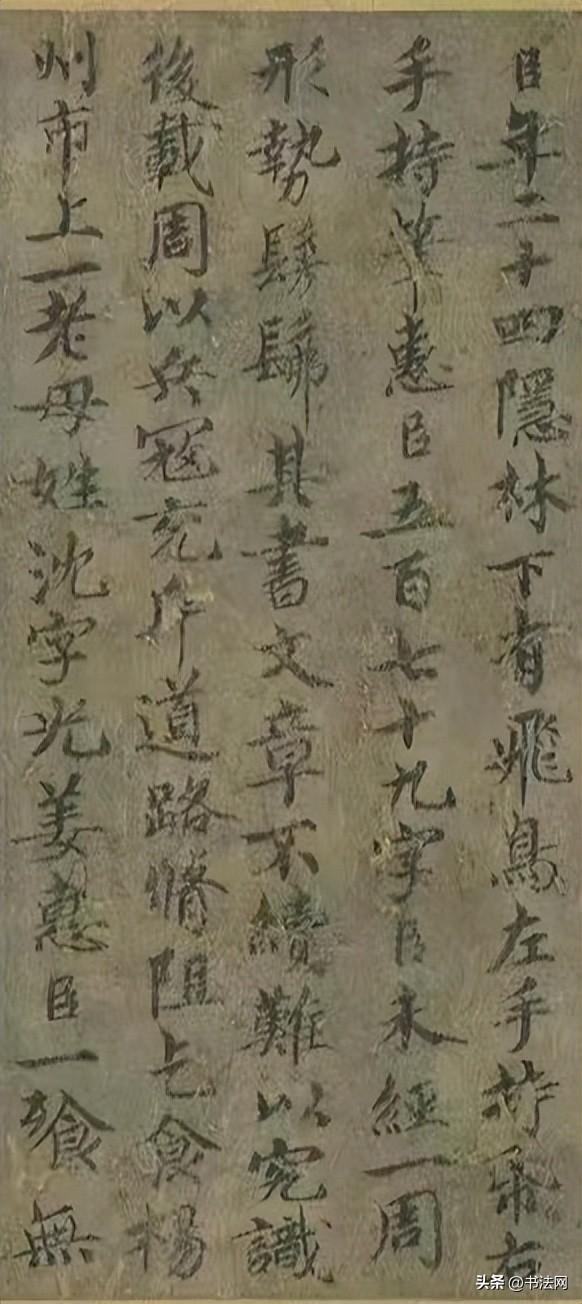 臣年二十四隱林下有飛鳥左手持帋右
手持筆惠臣五百七十九字臣未經一周
形勢髣髴其書文章不續難以究識
後載周以兵寇充斥道路脩阻乞食楊
州市上一老母姓沈字光姜惠臣一飱無
头条 @书法网